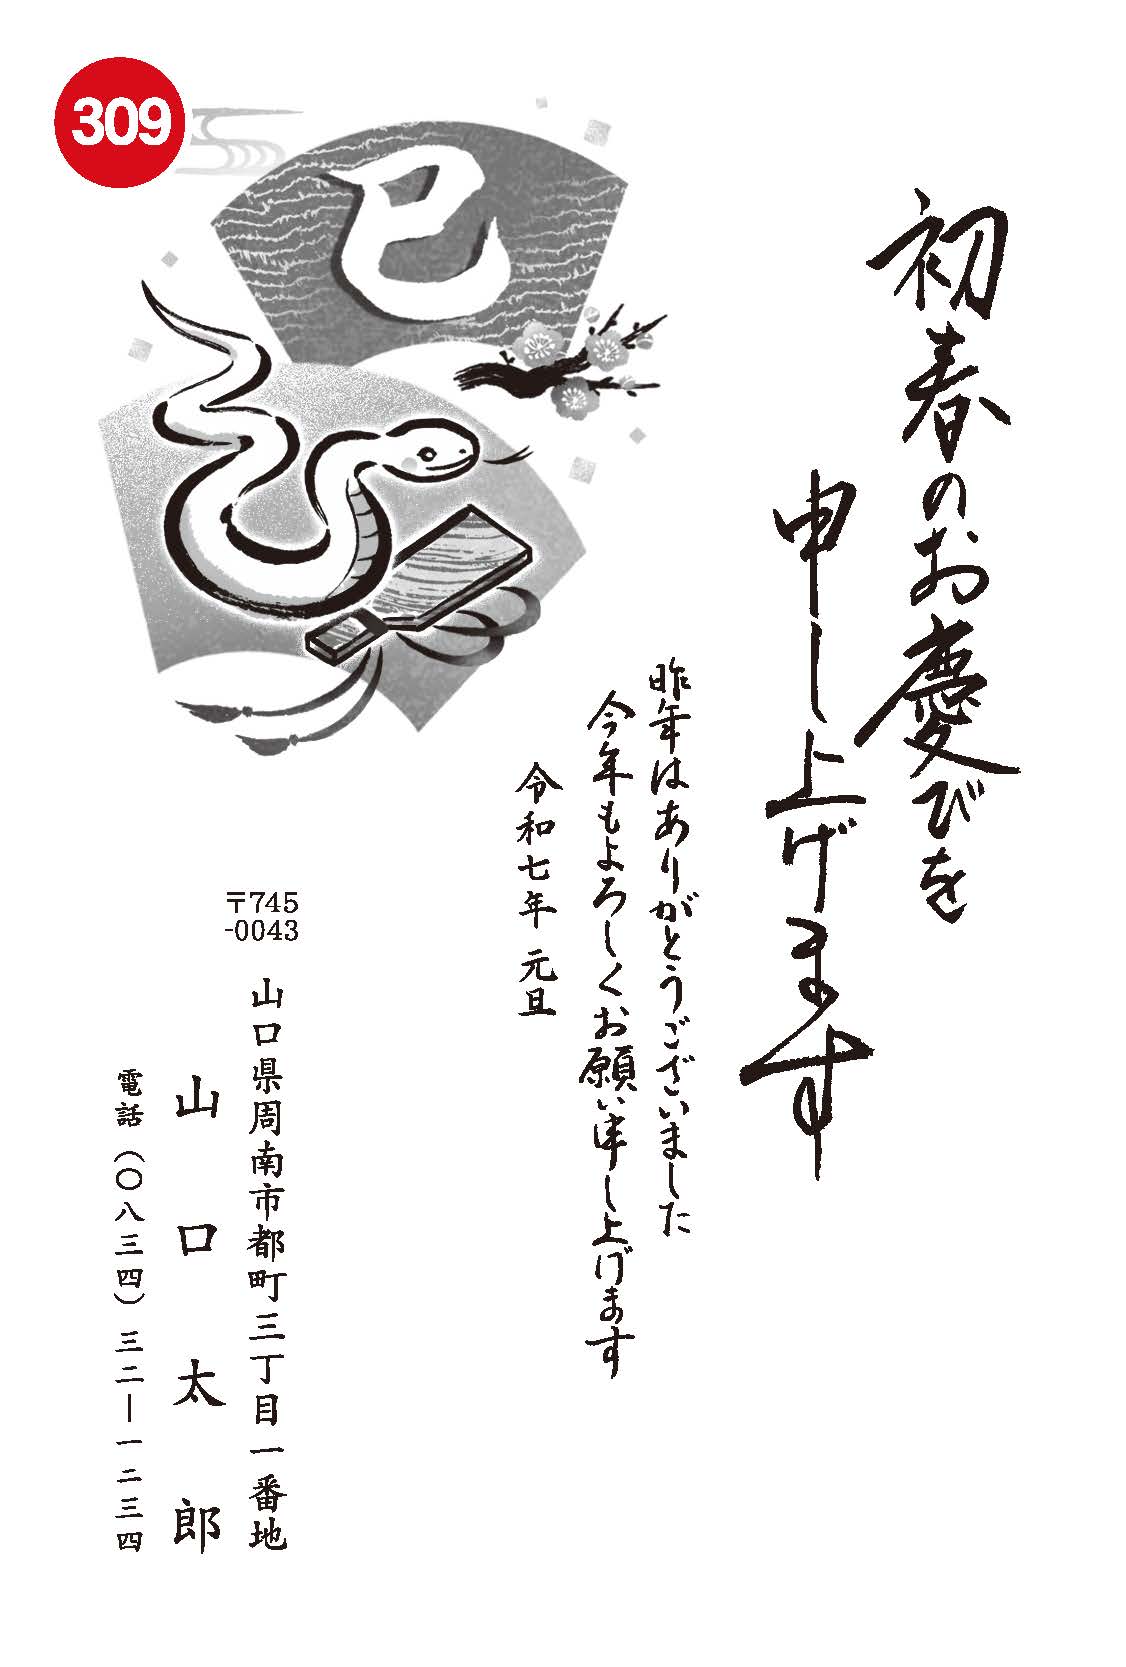 309
巳
初春のお慶びを
申し上げます
昨年はありがとうございました
今年もよろしくお願い申し上げます
令和七年 元旦
〒745
-0043
山口県周南市都町三丁目一番地
山口太郎
電話(〇八三四)三二―一二三四